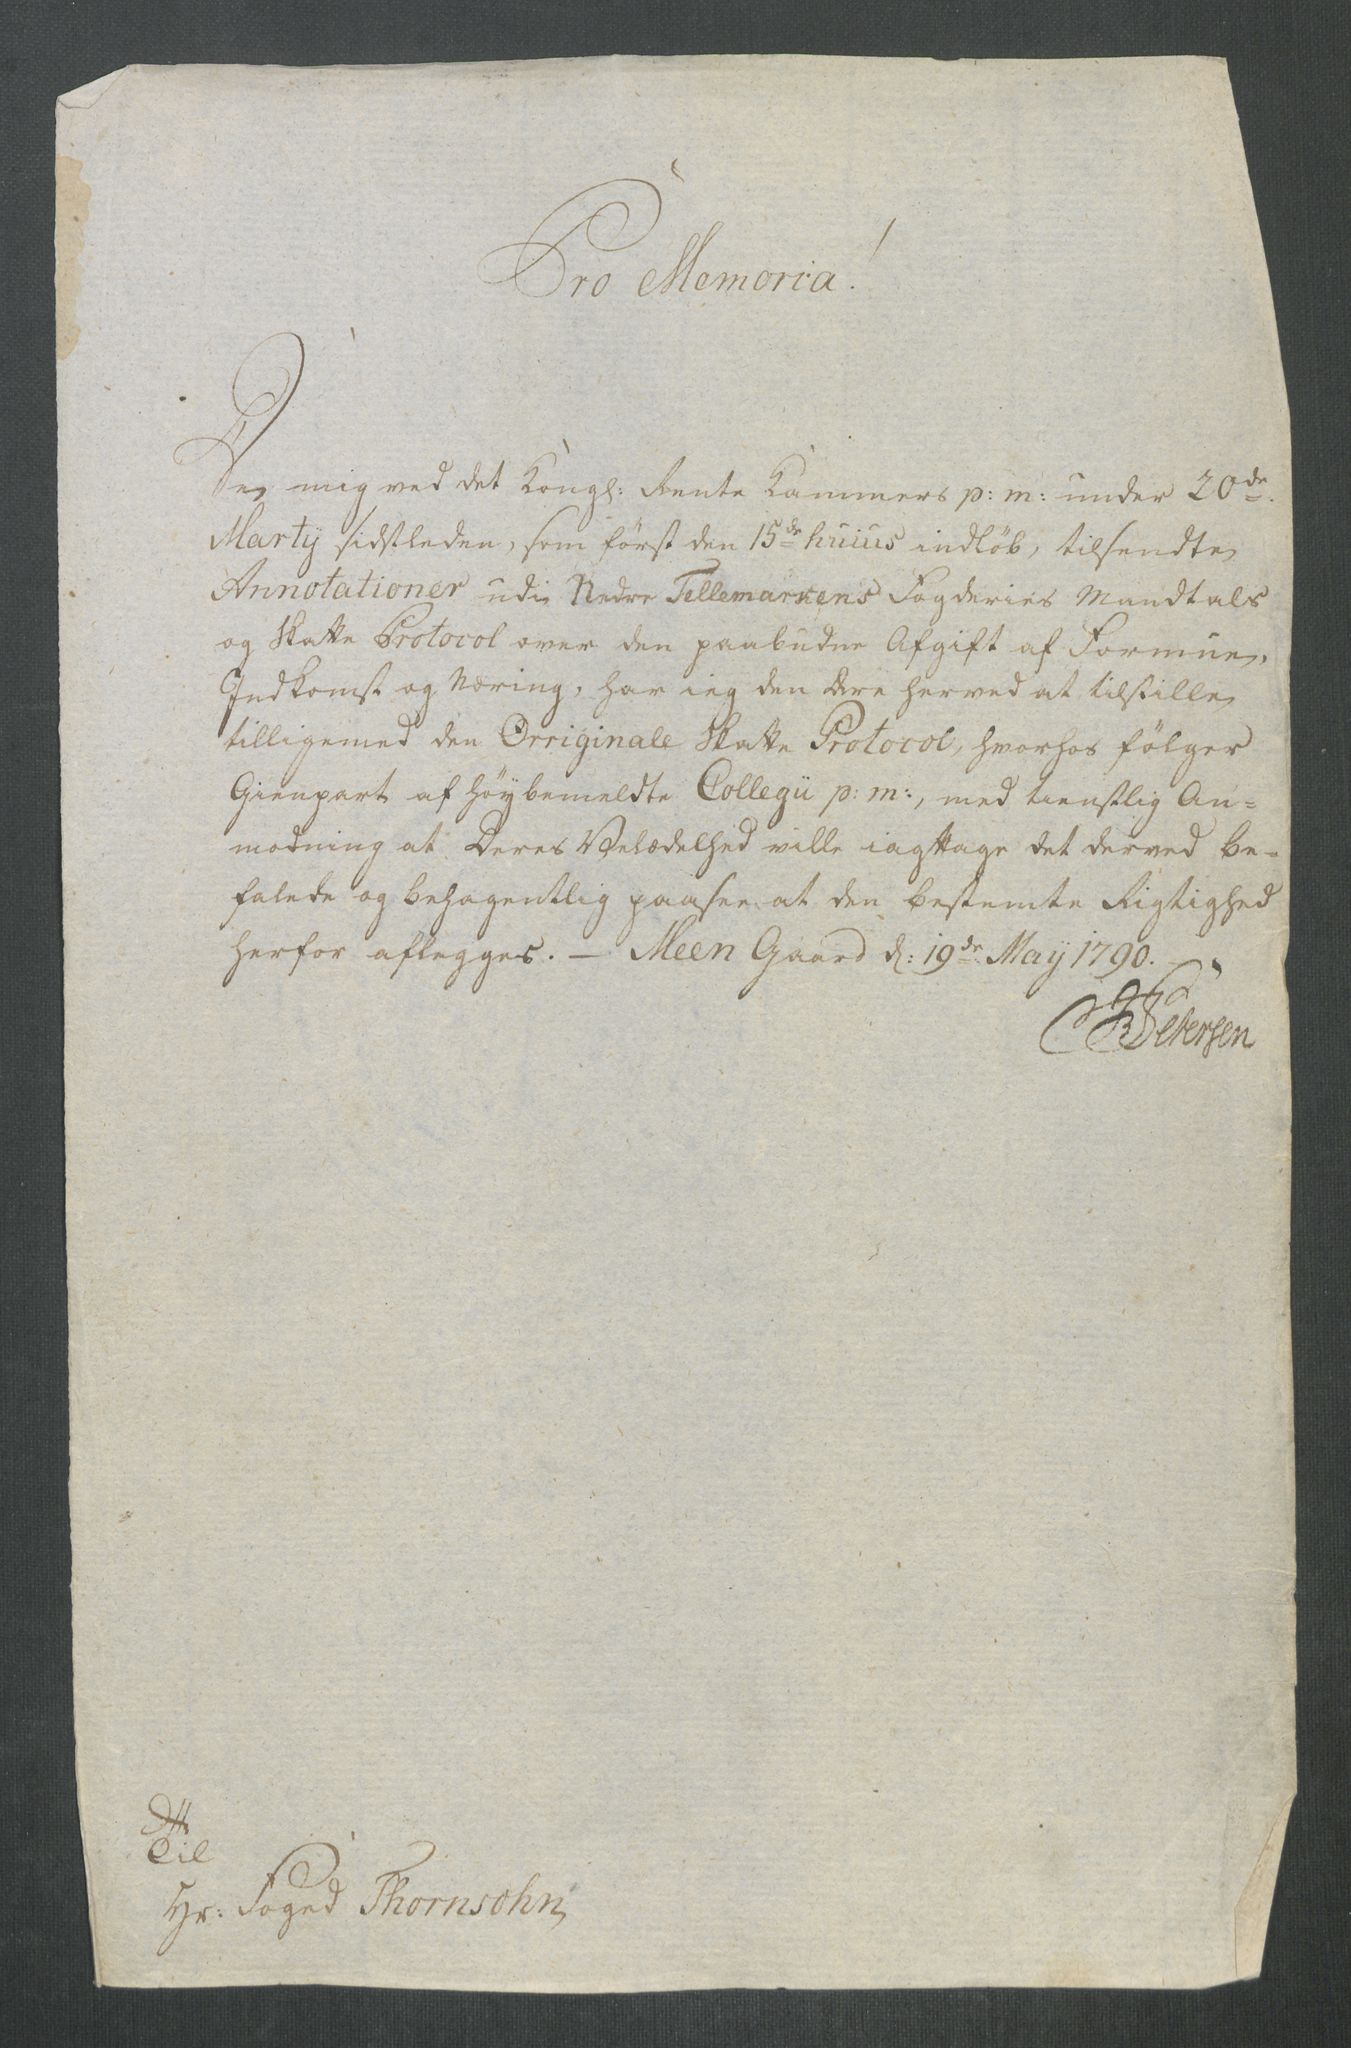 Pro Memoria!
De mig ved det Kongl: Rente Kammers p: m: under 20de
Martÿ sidstleden, som först den 15de huius indlöb, tilsendte
Annotationer udi Nedre Tellemarkens Fogderies Mandtals
og Skatte Protocol over den paabudne Afgift af Formue,
Indkomst og Næring, har ieg den Ære herved at tilstille
tilligemed den Orriginale Skatte Protocol, hvorhos fölger
Gienpart af höybemeldte Collegii p: m:, med tienstlig An-
modning at Deres Velædelhed ville iagttage det derved be-
falede og behagentlig paasee at den bestemte Rigtighed
herfor aflegges. — Meen Gaard d: 19de Maÿ 1790.
Petersen
Til
Hr: Foged Thornsohn